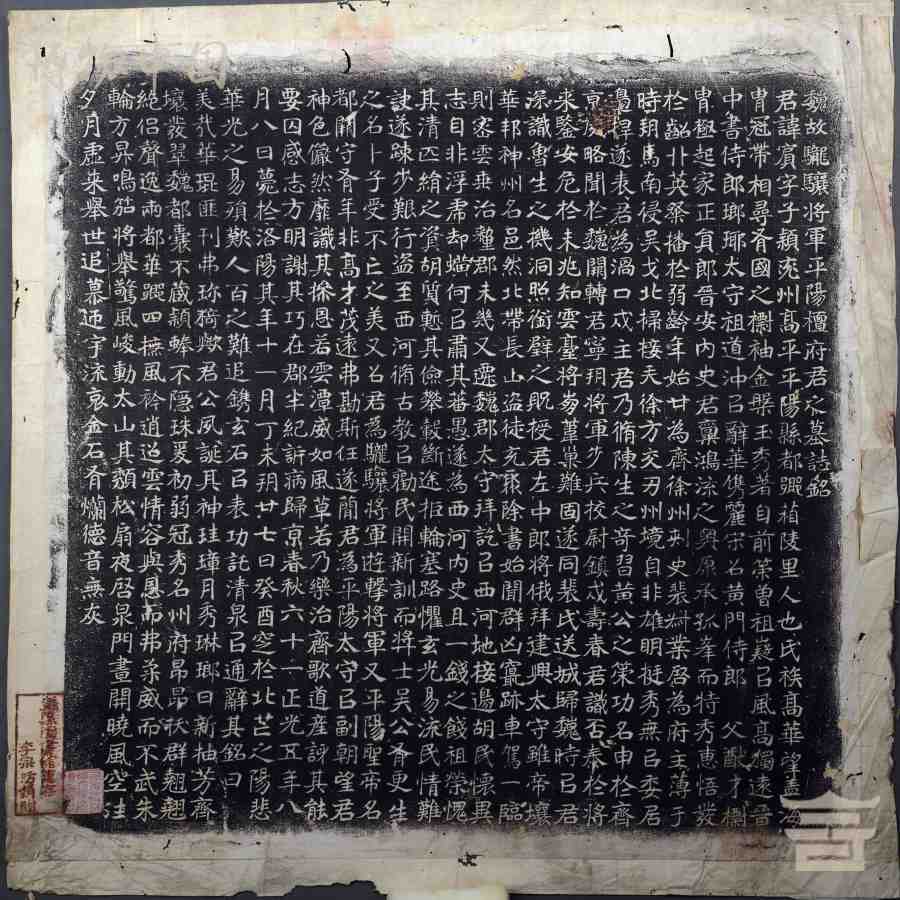 魏故龍驤將軍平陽檀府君之墓誌銘
君諱賓字子穎兖州高平平陽縣都鄉箱陵里人也氏袟高華望盖海
胄冠帶相尋齊國之㯹袖金槃玉秀著自前策曾祖嶷㠯風高獨遠晉
中書侍郎瑯琊太守祖道沖㠯辭華雋麗宋名黃門侍郎 父猷才㯹
胄極起家正員郎晉安內史君稟鴻流之輿原承孤峯而特秀惠悟發
於齠丱英祭播於弱齡年始廿為齊徐州刺史裴叔業啓為府主薄于
時玥馬南侵吳戈北掃接夫徐方交刃州境自非雄明挺秀無㠯委居
邊捍遂表君為渦口戍主君乃脩陳生之奇習黃公之策功名申於齊
京威略聞於魏闕轉君寧玥將軍步兵校尉鎮戍壽春君識否泰於將
來鑒安危於未兆知雲臺將崩葦巢難固遂同裴氏送城歸魏時㠯君
深識魯生之機洞照銜璧之貺授君左中郎將俄拜建興太守雖帝壤
華邦神州名邑然北帶長山盜徒充聚除書始聞群凶竄跡車駕一臨
則密雲垂治郡未幾又遷魏郡太守拜訖㠯西河地接邊胡民懷異
志自非浮虎却蝗何㠯肅其蕃愚遂為西河內史且一錢之餞祖榮愧
其清匹絹之資胡質慙其儉攀轂斷途拒輪塞路懼玄光易流民情難
訣遂踈步艱行盜至西河脩古教㠯勸民開新訓而將士吳公胥更生
之名卜子受不亡之美又㠯君為龍驤將軍遊擊將軍又平陽聖帝名
都關守胥年非高才茂遠弗勘斯任遂簡君為平陽太守㠯副朝望君
神色儼然靡識其搽恩若雲潭威如風草若乃樂治齊歌道産謌其能
要囚感志方明謝其巧在郡半紀訴病歸京春秋六十一正光五年八
月八日薨於洛陽其年十一月丁未玥廿七日癸酉窆於北芒之陽悲
華光之易殞歎人百之難追鐫玄石㠯表功託清泉㠯通辭其銘曰
美哉華琨匪刊弗珎猗歟君公夙誕其神珪璋月秀琳瑯日新柚芳齊
壤發翠魏都囊不蔵穎蜯不隱珠爰初弱冠秀名州府昂昂秋群翹翹
絕侶聲逸兩都華躔四撫風衿道逈雲情容與恩而弗柔威而不武朱
輪方昇鳴笳將舉驚風峻動太山其頹松扇夜啓泉門晝開曉風空往
夕月虛來舉世追慕逈宇流哀金石胥爛德音無灰